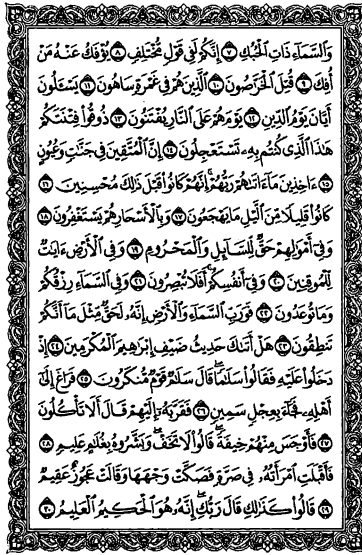 وَالسَّمَاءِ ذَاتِ الْحُبُكِ ٧ إِنَّكُمْ لَفِي قَوْلٍ مُّخْتَلِفٍ ٨ يُؤْفَكُ عَنْهُ مَنْ
أُفِكَ ٩ قُتِلَ الْخَرَّاصُونَ ١٠ الَّذِينَ هُمْ فِي غَمْرَةٍ سَاهُونَ ١١ يَسْأَلُونَ
أَيَّانَ يَوْمُ الدِّينِ ١٢ يَوْمَ هُمْ عَلَى النَّارِ يُفْتَنُونَ ١٣ ذُوقُوا فِتْنَتَكُمْ
هَٰذَا الَّذِي كُنتُم بِهِ تَسْتَعْجِلُونَ ١٤ إِنَّ الْمُتَّقِينَ فِي جَنَّاتٍ وَعُيُونٍ
١٥ آخِذِينَ مَا آتَاهُمْ رَبُّهُمْ إِنَّهُمْ كَانُوا قَبْلَ ذَٰلِكَ مُحْسِنِينَ ١٦
كَانُوا قَلِيلًا مِّنَ اللَّيْلِ مَا يَهْجَعُونَ ١٧ وَبِالْأَسْحَارِ هُمْ يَسْتَغْفِرُونَ ١٨
وَفِي أَمْوَالِهِمْ حَقٌّ لِّلسَّائِلِ وَالْمَحْرُومِ ١٩ وَفِي الْأَرْضِ آيَاتٌ
لِّلْمُوقِنِينَ ٢٠ وَفِي أَنفُسِكُمْ أَفَلَا تُبْصِرُونَ ٢١ وَفِي السَّمَاءِ رِزْقُكُمْ
وَمَا تُوعَدُونَ ٢٢ فَوَرَبِّ السَّمَاءِ وَالْأَرْضِ إِنَّهُ لَحَقٌّ مِّثْلَ مَا أَنَّكُمْ
تَنطِقُونَ ٢٣ هَلْ أَتَاكَ حَدِيثُ ضَيْفِ إِبْرَاهِيمَ الْمُكْرَمِينَ ٢٤ إِذْ
دَخَلُوا عَلَيْهِ فَقَالُوا سَلَامًا قَالَ سَلَامٌ قَوْمٌ مُّنكَرُونَ ٢٥ فَرَاغَ إِلَىٰ
أَهْلِهِ فَجَاءَ بِعِجْلٍ سَمِينٍ ٢٦ فَقَرَّبَهُ إِلَيْهِمْ قَالَ أَلَا تَأْكُلُونَ
٢٧ فَأَوْجَسَ مِنْهُمْ خِيفَةً قَالُوا لَا تَخَفْ وَبَشَّرُوهُ بِغُلَامٍ عَلِيمٍ ٢٨
فَأَقْبَلَتِ امْرَأَتُهُ فِي صَرَّةٍ فَصَكَّتْ وَجْهَهَا وَقَالَتْ عَجُوزٌ عَقِيمٌ
٢٩ قَالُوا كَذَٰلِكِ قَالَ رَبُّكِ إِنَّهُ هُوَ الْحَكِيمُ الْعَلِيمُ ٣٠